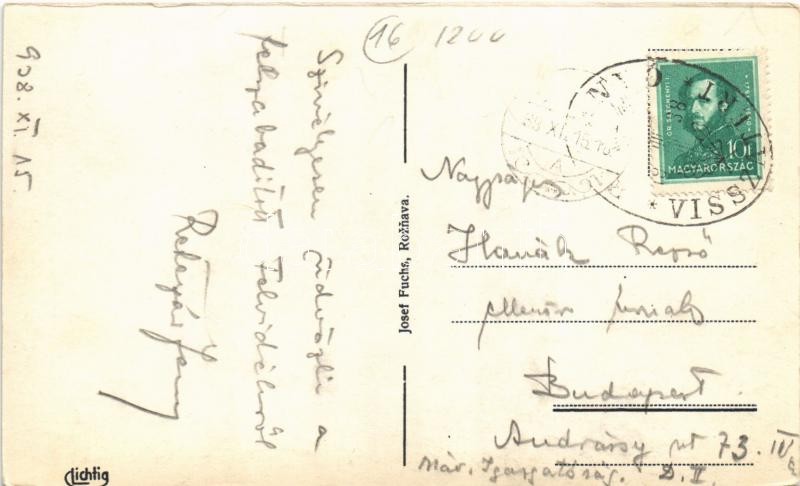 16 1200
938. XI. 15.
Szívélyesen üdvözli a
felszabadított Felvidékről
Josef Fuchs, Rožňava.
Lichtig
GR. SZÉCHENYI I.
10f
MAGYARORSZÁG
VISSZATÉRT
38 XI. 15
Nagyságos
Hanák Rezső
ellenőr
Budapest
Andrássy út 73. IV
Máv. Igazgatóság. D. II.